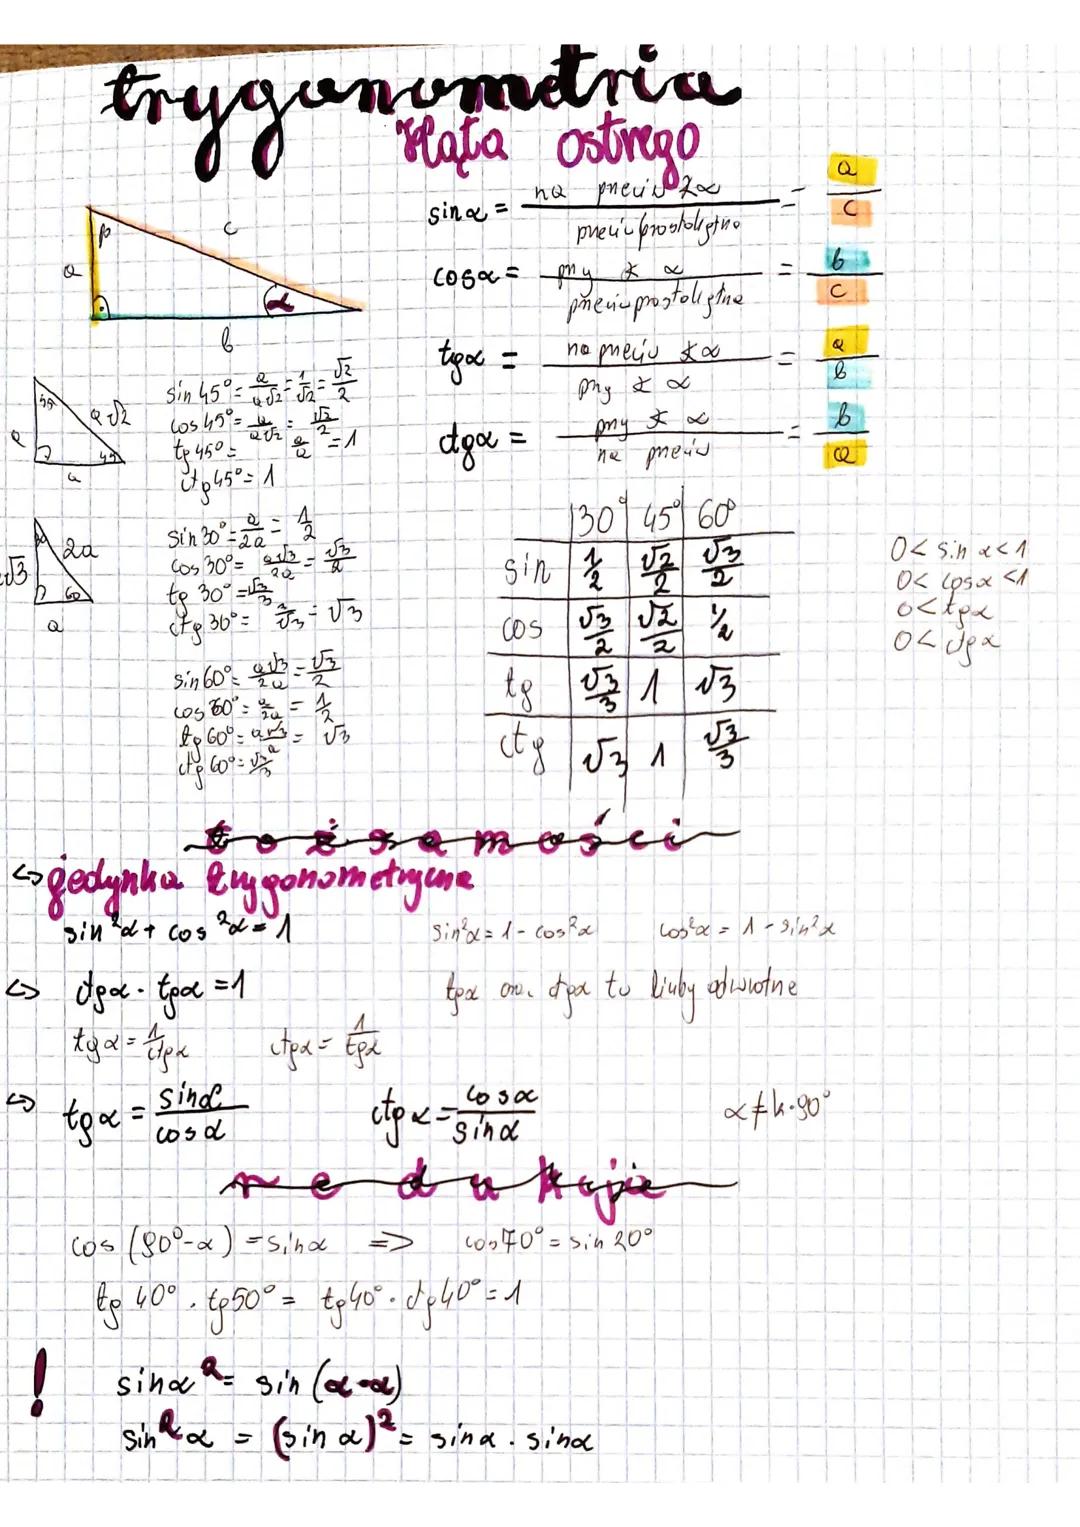 trygonometria
kąta ostrego
sin α = na przeciw ∡α / przeciwprostokątna = a / c
cos α = przy ∡ α / przeciwprostokątna = b / c
tg α = na przeciw ∡α / przy ∡ α = a / b
ctg α = przy ∡ α / na przeciw = b / a
β
c
a
α
b
sin 45° = a/a√2 = 1/√2 = √2/2
cos 45° = a/a√2 = √2/2
tg 45° = a/a = 1
ctg 45° = 1
45
a√2
a
45
a
sin 30° = a/2a = 1/2
cos 30° = a√3/2a = √3/2
tg 30° = √3/3
ctg 30° = 3/√3 = √3
2a
√3
60
a
sin 60° = a√3/2a = √3/2
cos 60° = a/2a = 1/2
tg 60° = a√3/a = √3
ctg 60° = √3/3
30° 45° 60°
sin 1/2 √2/2 √3/2
cos √3/2 √2/2 1/2
tg √3/3 1 √3
ctg √3 1 √3/3
0 < sin α < 1
0 < cos α < 1
0 < tg α
0 < ctg α
tożsamości
↪ jedynka trygonometryczna
sin²α + cos²α = 1 sin²α = 1 - cos²α cos²α = 1 - sin²α
↪ ctgα · tgα = 1 tgα oraz ctgα to liczby odwrotne
tg α = 1/ctgα ctgα = 1/tgα
↪ tg α = sin α/cos α ctg α = cos α/sin α α ≠ k·90°
redukcje
cos (90°-α) = sin α => cos 70° = sin 20°
tg 40° · tg 50° = tg 40° · ctg 40° = 1
! sin α² = sin (α·α)
sin²α = (sin α)² = sin α · sin α